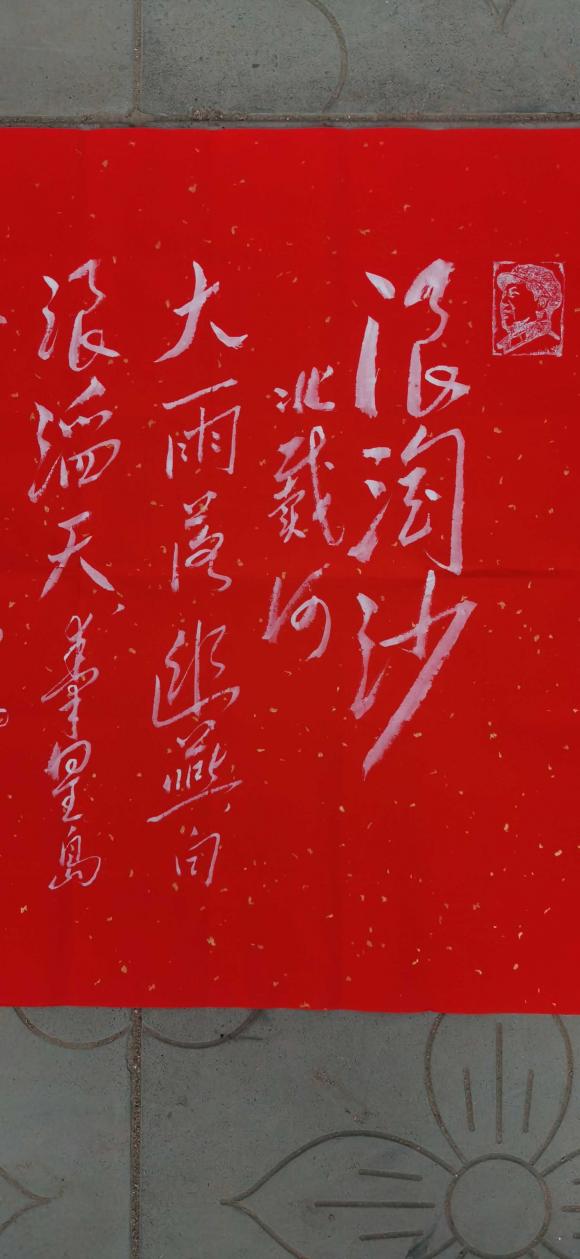 浪淘沙
北戴河
大雨落幽燕白
浪滔天秦皇岛